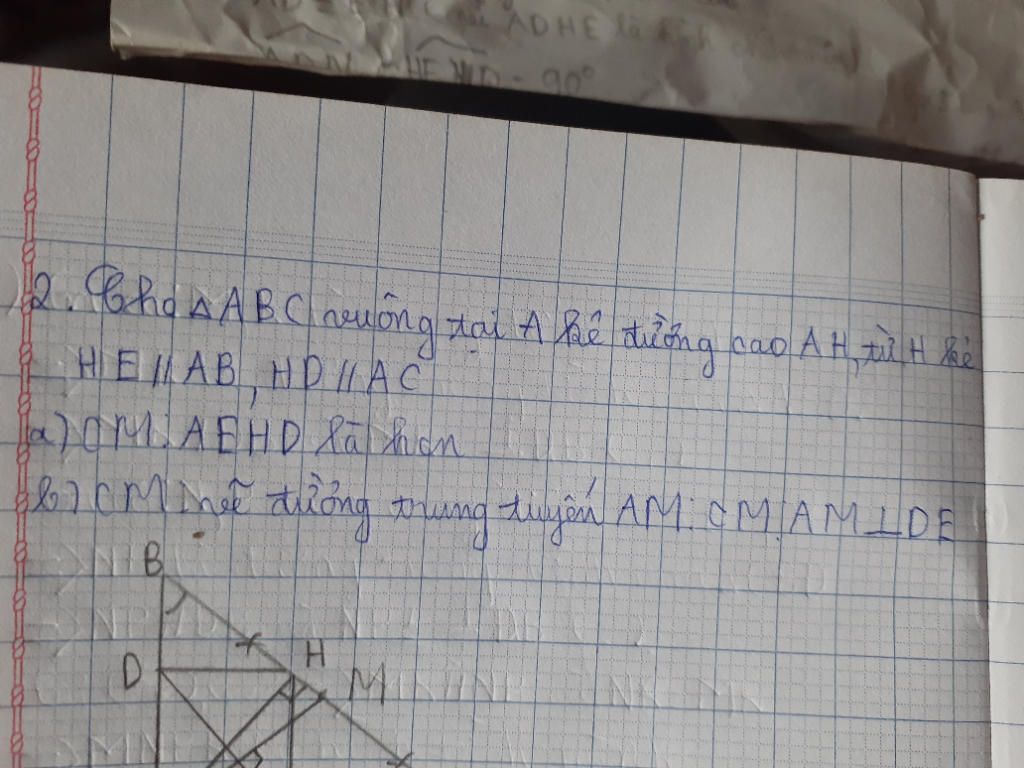 ADHE là hình
HED = 90°
2. Cho △ABC vuông tại A kẻ đường cao AH, từ H kẻ
HE // AB, HD // AC
a) CM: AEHD là hcn
b) CM đường trung tuyến AM. CM: AM ⊥ DE
B
H
D
M